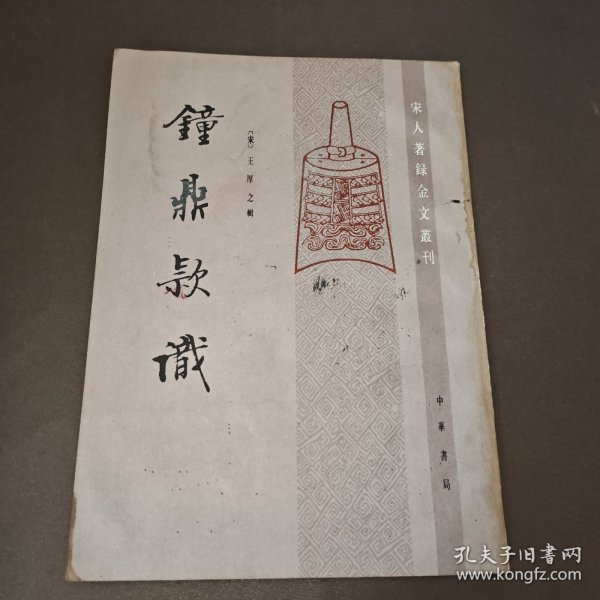 宋人著録金文叢刊
〔宋〕王厚之輯
鐘鼎款識
中華書局
孔夫子旧書网
www.kongfz.com